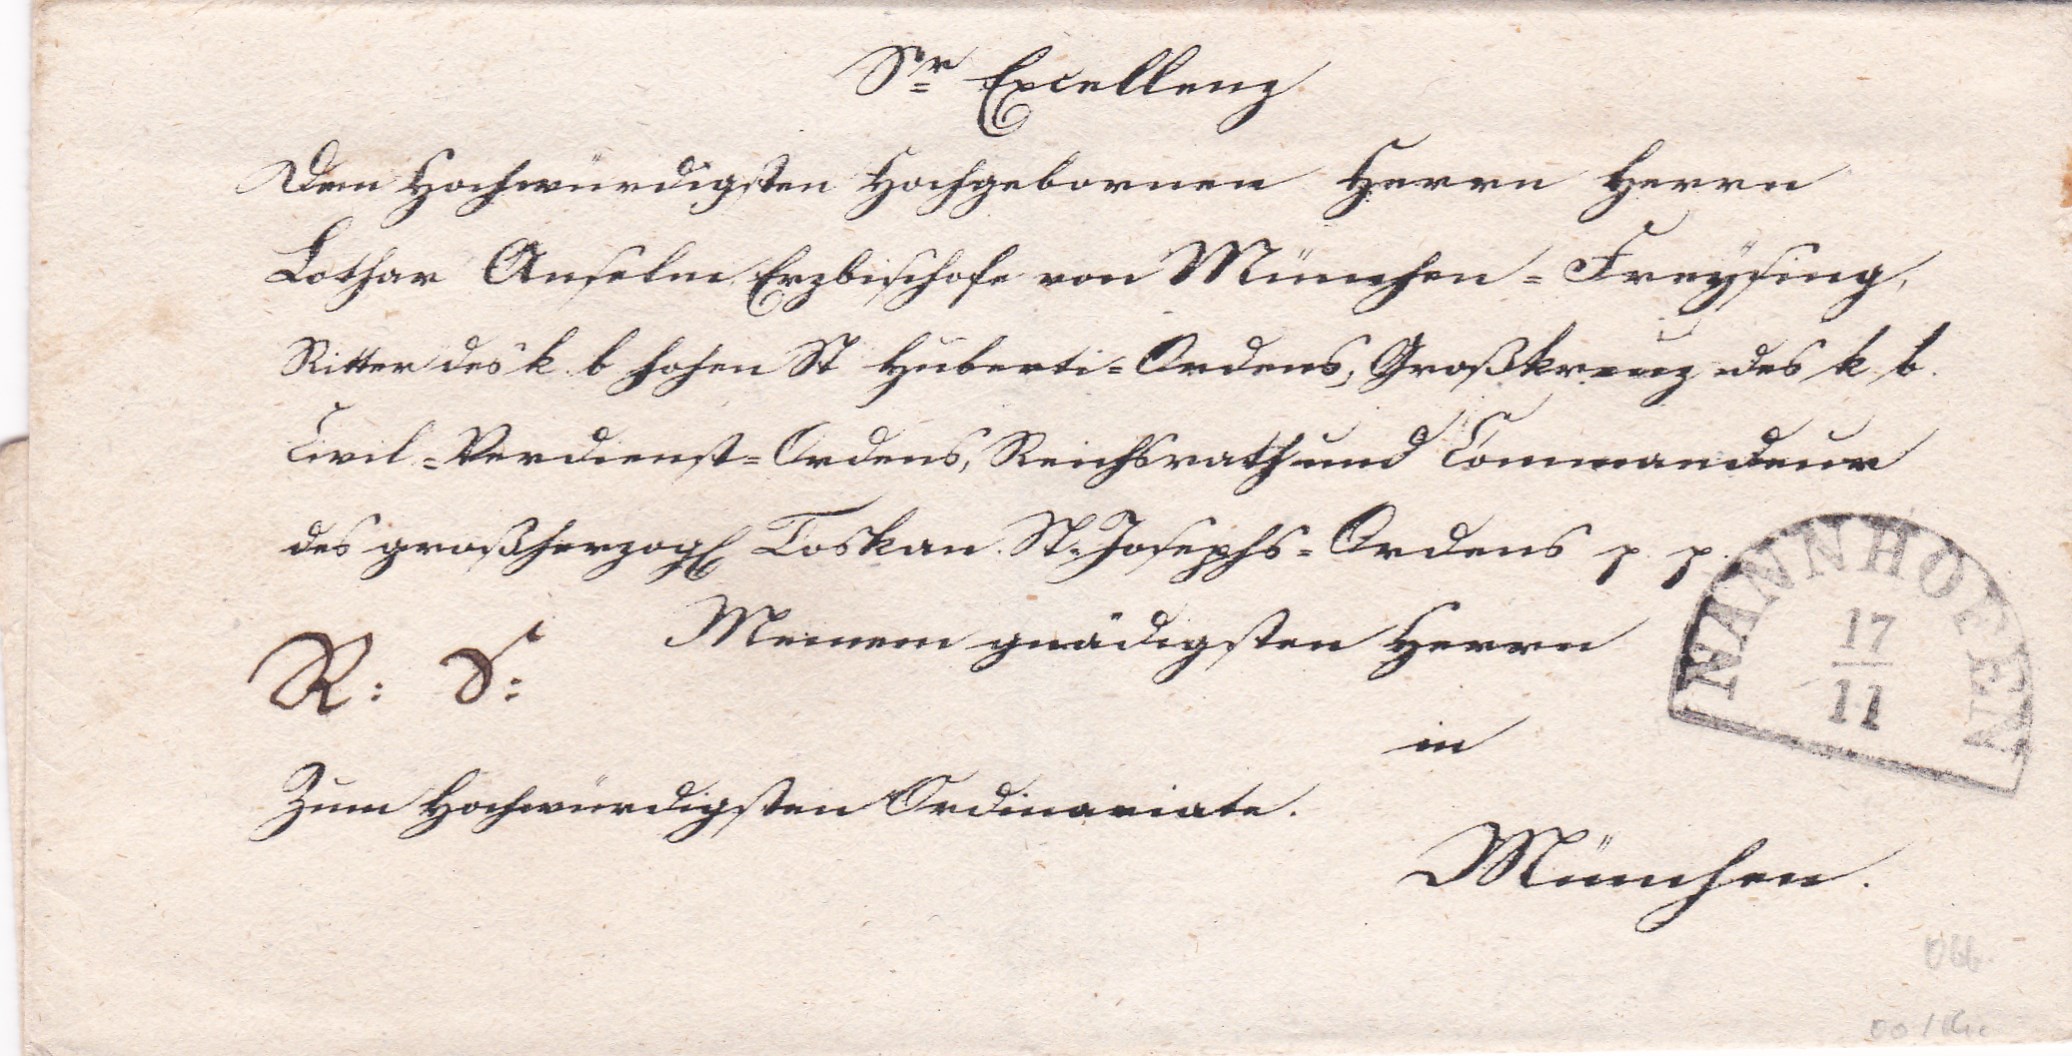 Sr Excellenz
Dem Hochwürdigsten Hochgebornen Herrn Herrn
Lothar Anselm Erzbischofe von München=Freysing,
Ritter des k b hohen St Huberti=Ordens, Großkreuz des k. b.
Civil=Verdienst=Ordens, Reichsrath und Commandeur
des großherzogl Toskan. St. Josephs=Ordens p. p.
Meinem gnädigsten Herrn
R: S:
in
Zum Hochwürdigsten Ordinariate.
München.
NANNHOFEN
17
11